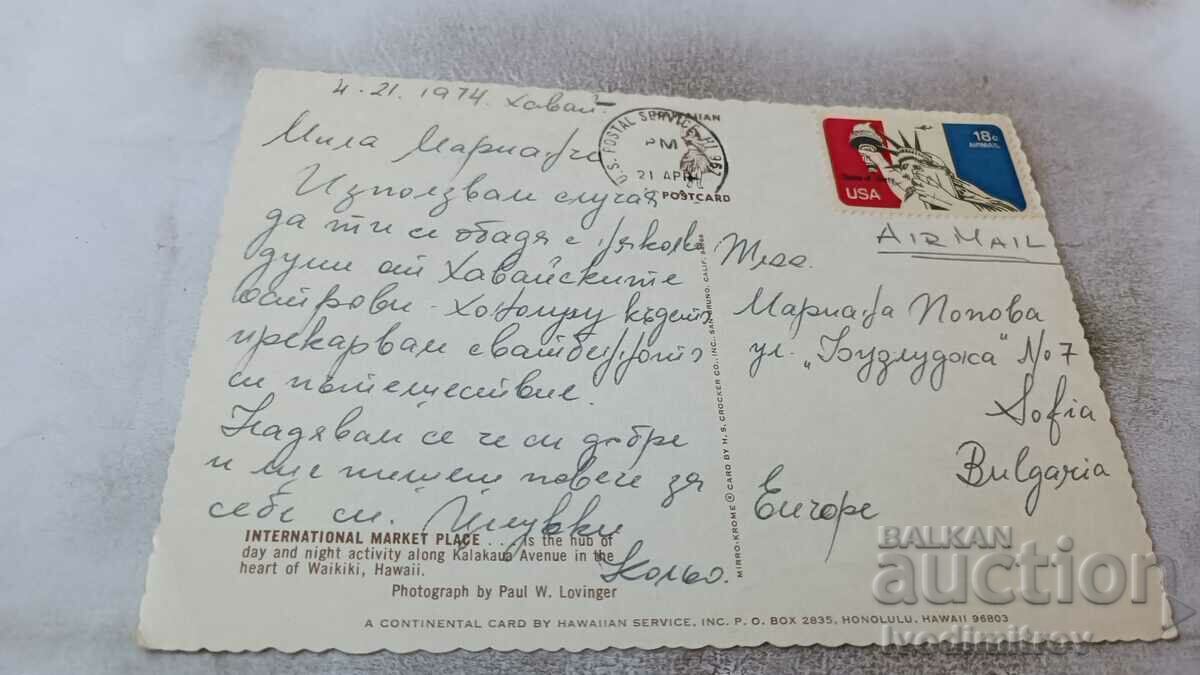 4.21.1974. Хавай.
Мила Марианче
Използвам случая
да ти се обадя с някоя
думи от Хавайските
острови - Хонолулу където
прекарвам сватбеното
си пътешествие.
Надявам се че си добре
и ще пишеш повече за
себе си. Целувки
Кольо.
INTERNATIONAL MARKET PLACE . . . is the hub of
day and night activity along Kalakaua Avenue in the
heart of Waikiki, Hawaii.
Photograph by Paul W. Lovinger
A CONTINENTAL CARD BY HAWAIIAN SERVICE, INC. P. O. BOX 2835, HONOLULU, HAWAII 96803
MIRRO-KROME ® CARD BY H. S. CROCKER CO., INC. SAN BRUNO, CALIF.
HAWAIIAN
POSTCARD
U.S. POSTAL SERVICE HI 967
PM
21 APR
18c
AIRMAIL
USA
AIR MAIL
Мариана Попова
ул. „Бузлуджа" No 7
Sofia
Bulgaria
Europe
BALKAN
auction
Ivodimitrov